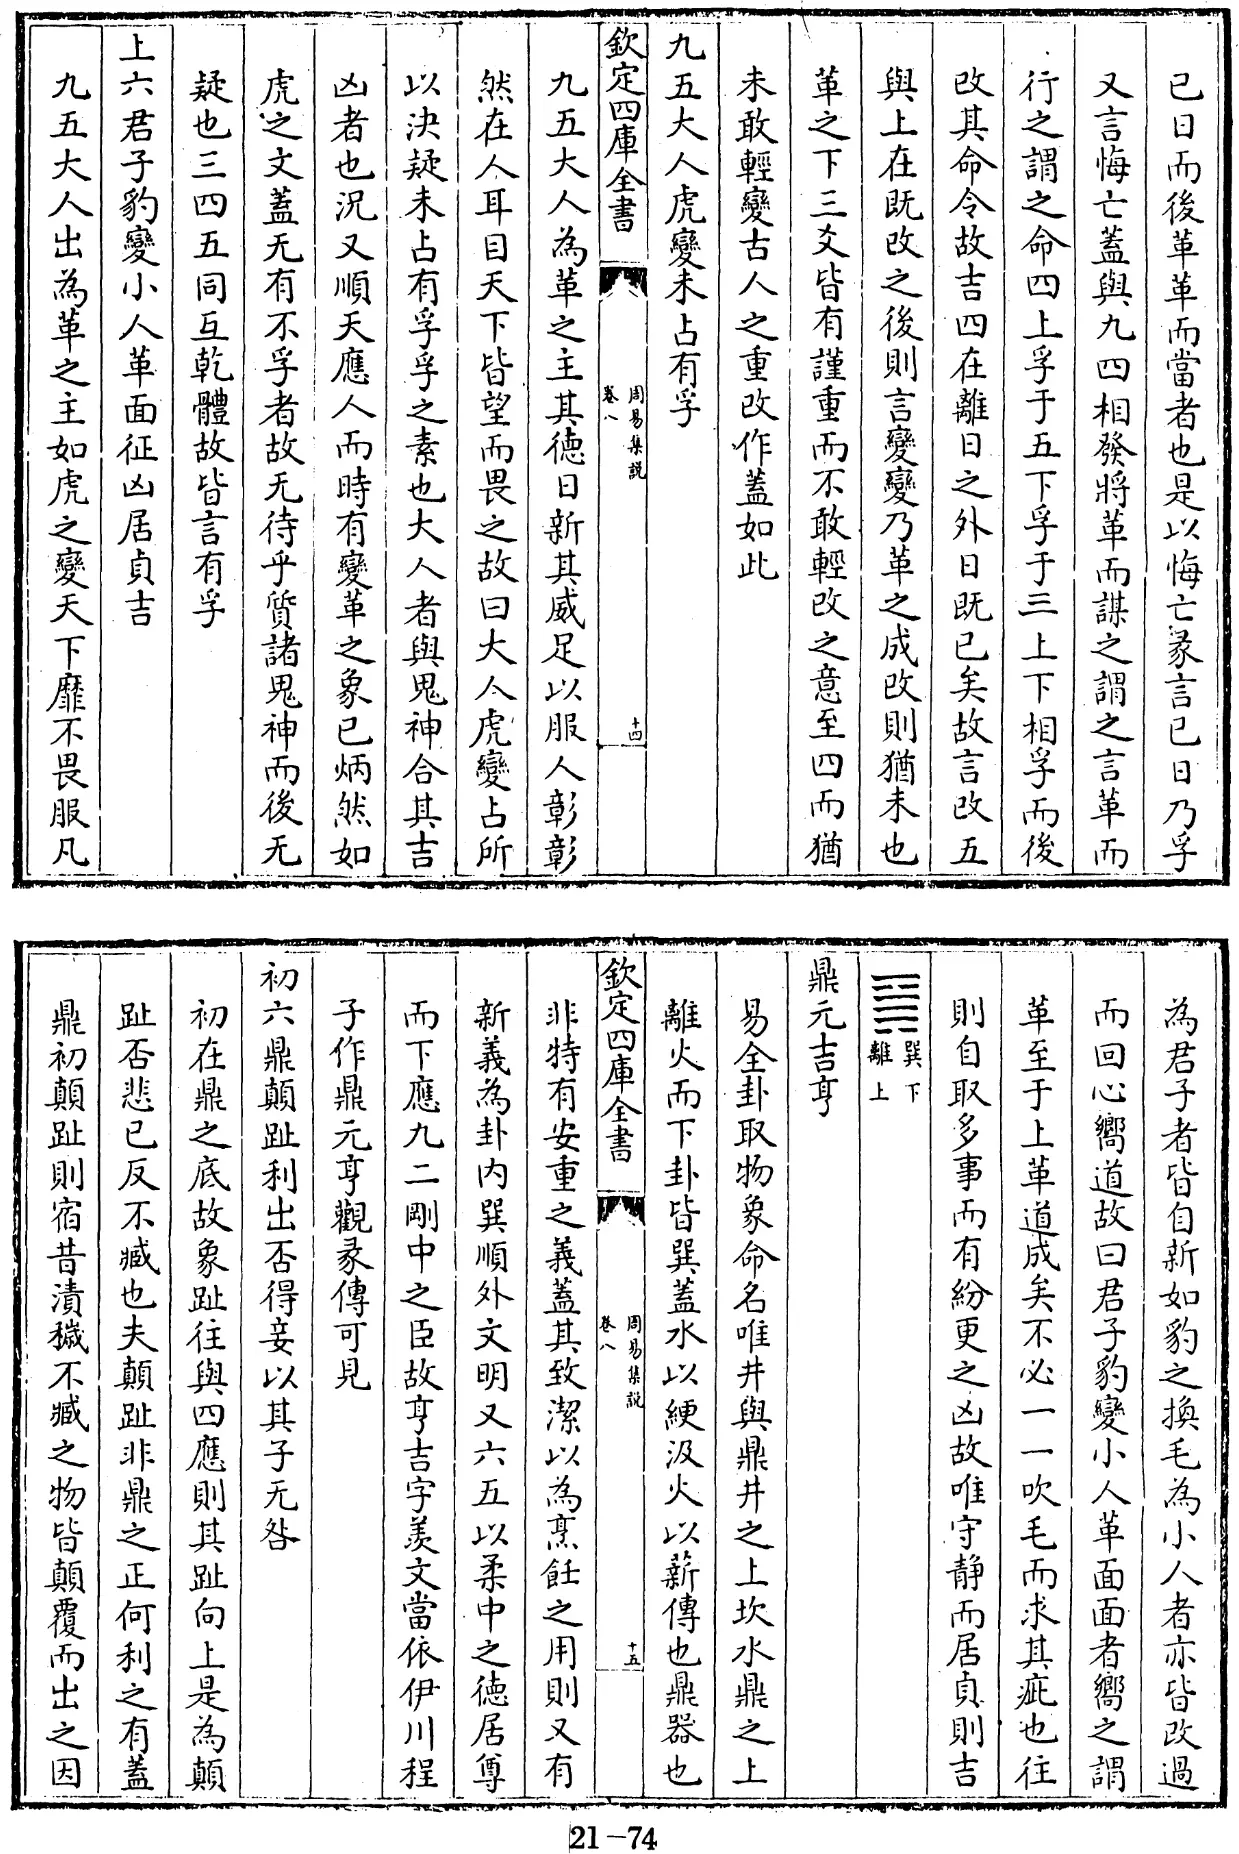 已日而後革革而當者也是以悔亡彖言已日乃孚
又言悔亡蓋與九四相發將革而謀之謂之言革而
行之謂之命四上孚于五下孚于三上下相孚而後
改其命令故吉四在離日之外日既已矣故言改五
與上在既改之後則言變變乃革之成改則猶未也
革之下三爻皆有謹重而不敢輕改之意至四而猶
未敢輕變古人之重改作蓋如此
九五大人虎變未占有孚
欽定四庫全書
周易集說
卷八
十四
九五大人為革之主其德日新其威足以服人彰彰
然在人耳目天下皆望而畏之故曰大人虎變占所
以決疑未占有孚孚之素也大人者與鬼神合其吉
凶者也況又順天應人而時有變革之象已炳然如
虎之文蓋无有不孚者故无待乎質諸鬼神而後无
疑也三四五同互乾體故皆言有孚
上六君子豹變小人革面征凶居貞吉
九五大人出為革之主如虎之變天下靡不畏服凡
為君子者皆自新如豹之換毛為小人者亦皆改過
而回心嚮道故曰君子豹變小人革面面者嚮之謂
革至于上革道成矣不必一一吹毛而求其疵也往
則自取多事而有紛更之凶故唯守靜而居貞則吉
䷱
巽下
離上
鼎元吉亨
易全卦取物象命名唯井與鼎井之上坎水鼎之上
離火而下卦皆巽蓋水以綆汲火以薪傳也鼎器也
欽定四庫全書
周易集說
卷八
十五
非特有安重之義蓋其致潔以為烹飪之用則又有
新義為卦內巽順外文明又六五以柔中之德居尊
而下應九二剛中之臣故亨吉字羨文當依伊川程
子作鼎元亨觀彖傳可見
初六鼎顛趾利出否得妾以其子无咎
初在鼎之底故象趾往與四應則其趾向上是為顛
趾否悲已反不臧也夫顛趾非鼎之正何利之有蓋
鼎初顛趾則宿昔漬穢不臧之物皆顛覆而出之因
21-74